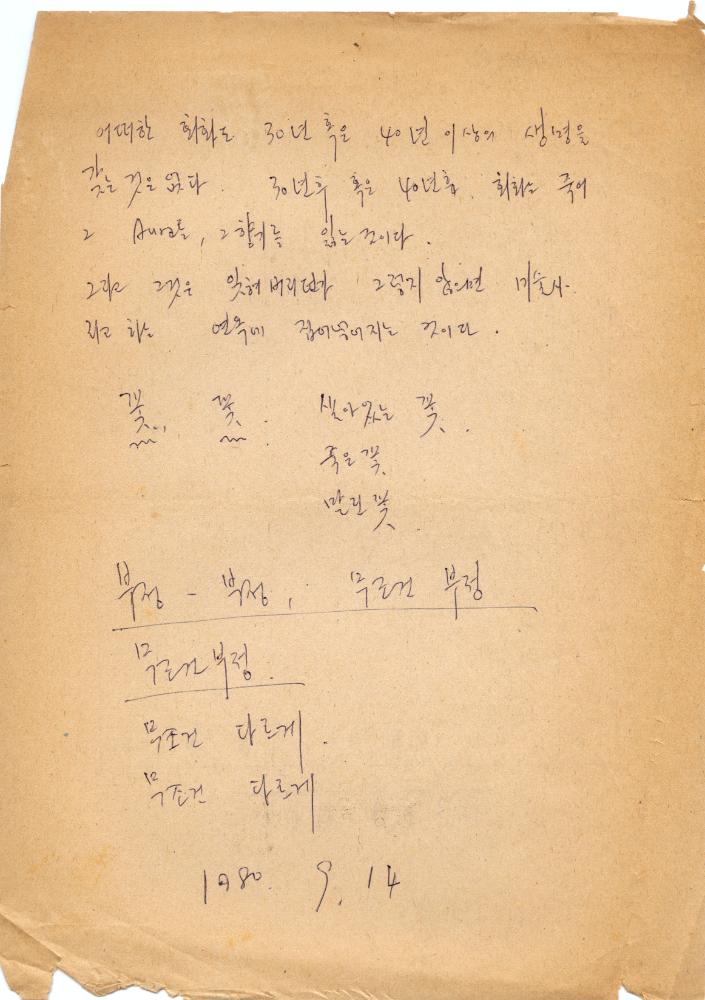 어떠한 회화도 30년 혹은 40년 이상의 생명을
갖는 것은 없다. 30년후 혹은 40년후, 회화는 죽어
그 Aura를, 그 향기를 잃는 것이다.
그리고 그것은 잊혀 버리던가 그렇지 않으면 미술사
라고 하는 연옥에 집어넣어지는 것이다.
꽃, 꽃. 살아있는 꽃.
죽은 꽃,
말린 꽃,
부정 - 부정, 무조건 부정
무조건 부정.
무조건 다르게.
무조건 다르게
1980. 9. 14